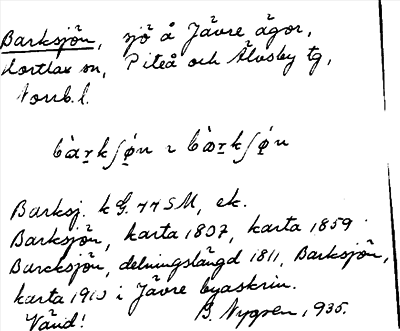 Barksjön, sjö å Jävre ägor,
Hortlax sn, Piteå och Älvsby tg,
Norrb. l.
bàr̠kʃø̠n ~ bàr̠kʃø̠n
Barksj. kG. 44 SM, ek.
Barksjön, karta 1807, karta 1859.
Barcksjön, delningslängd 1811, Barksjön,
karta 1910 i Jävre byaskrin.
Vänd! G. Nygren, 1935.